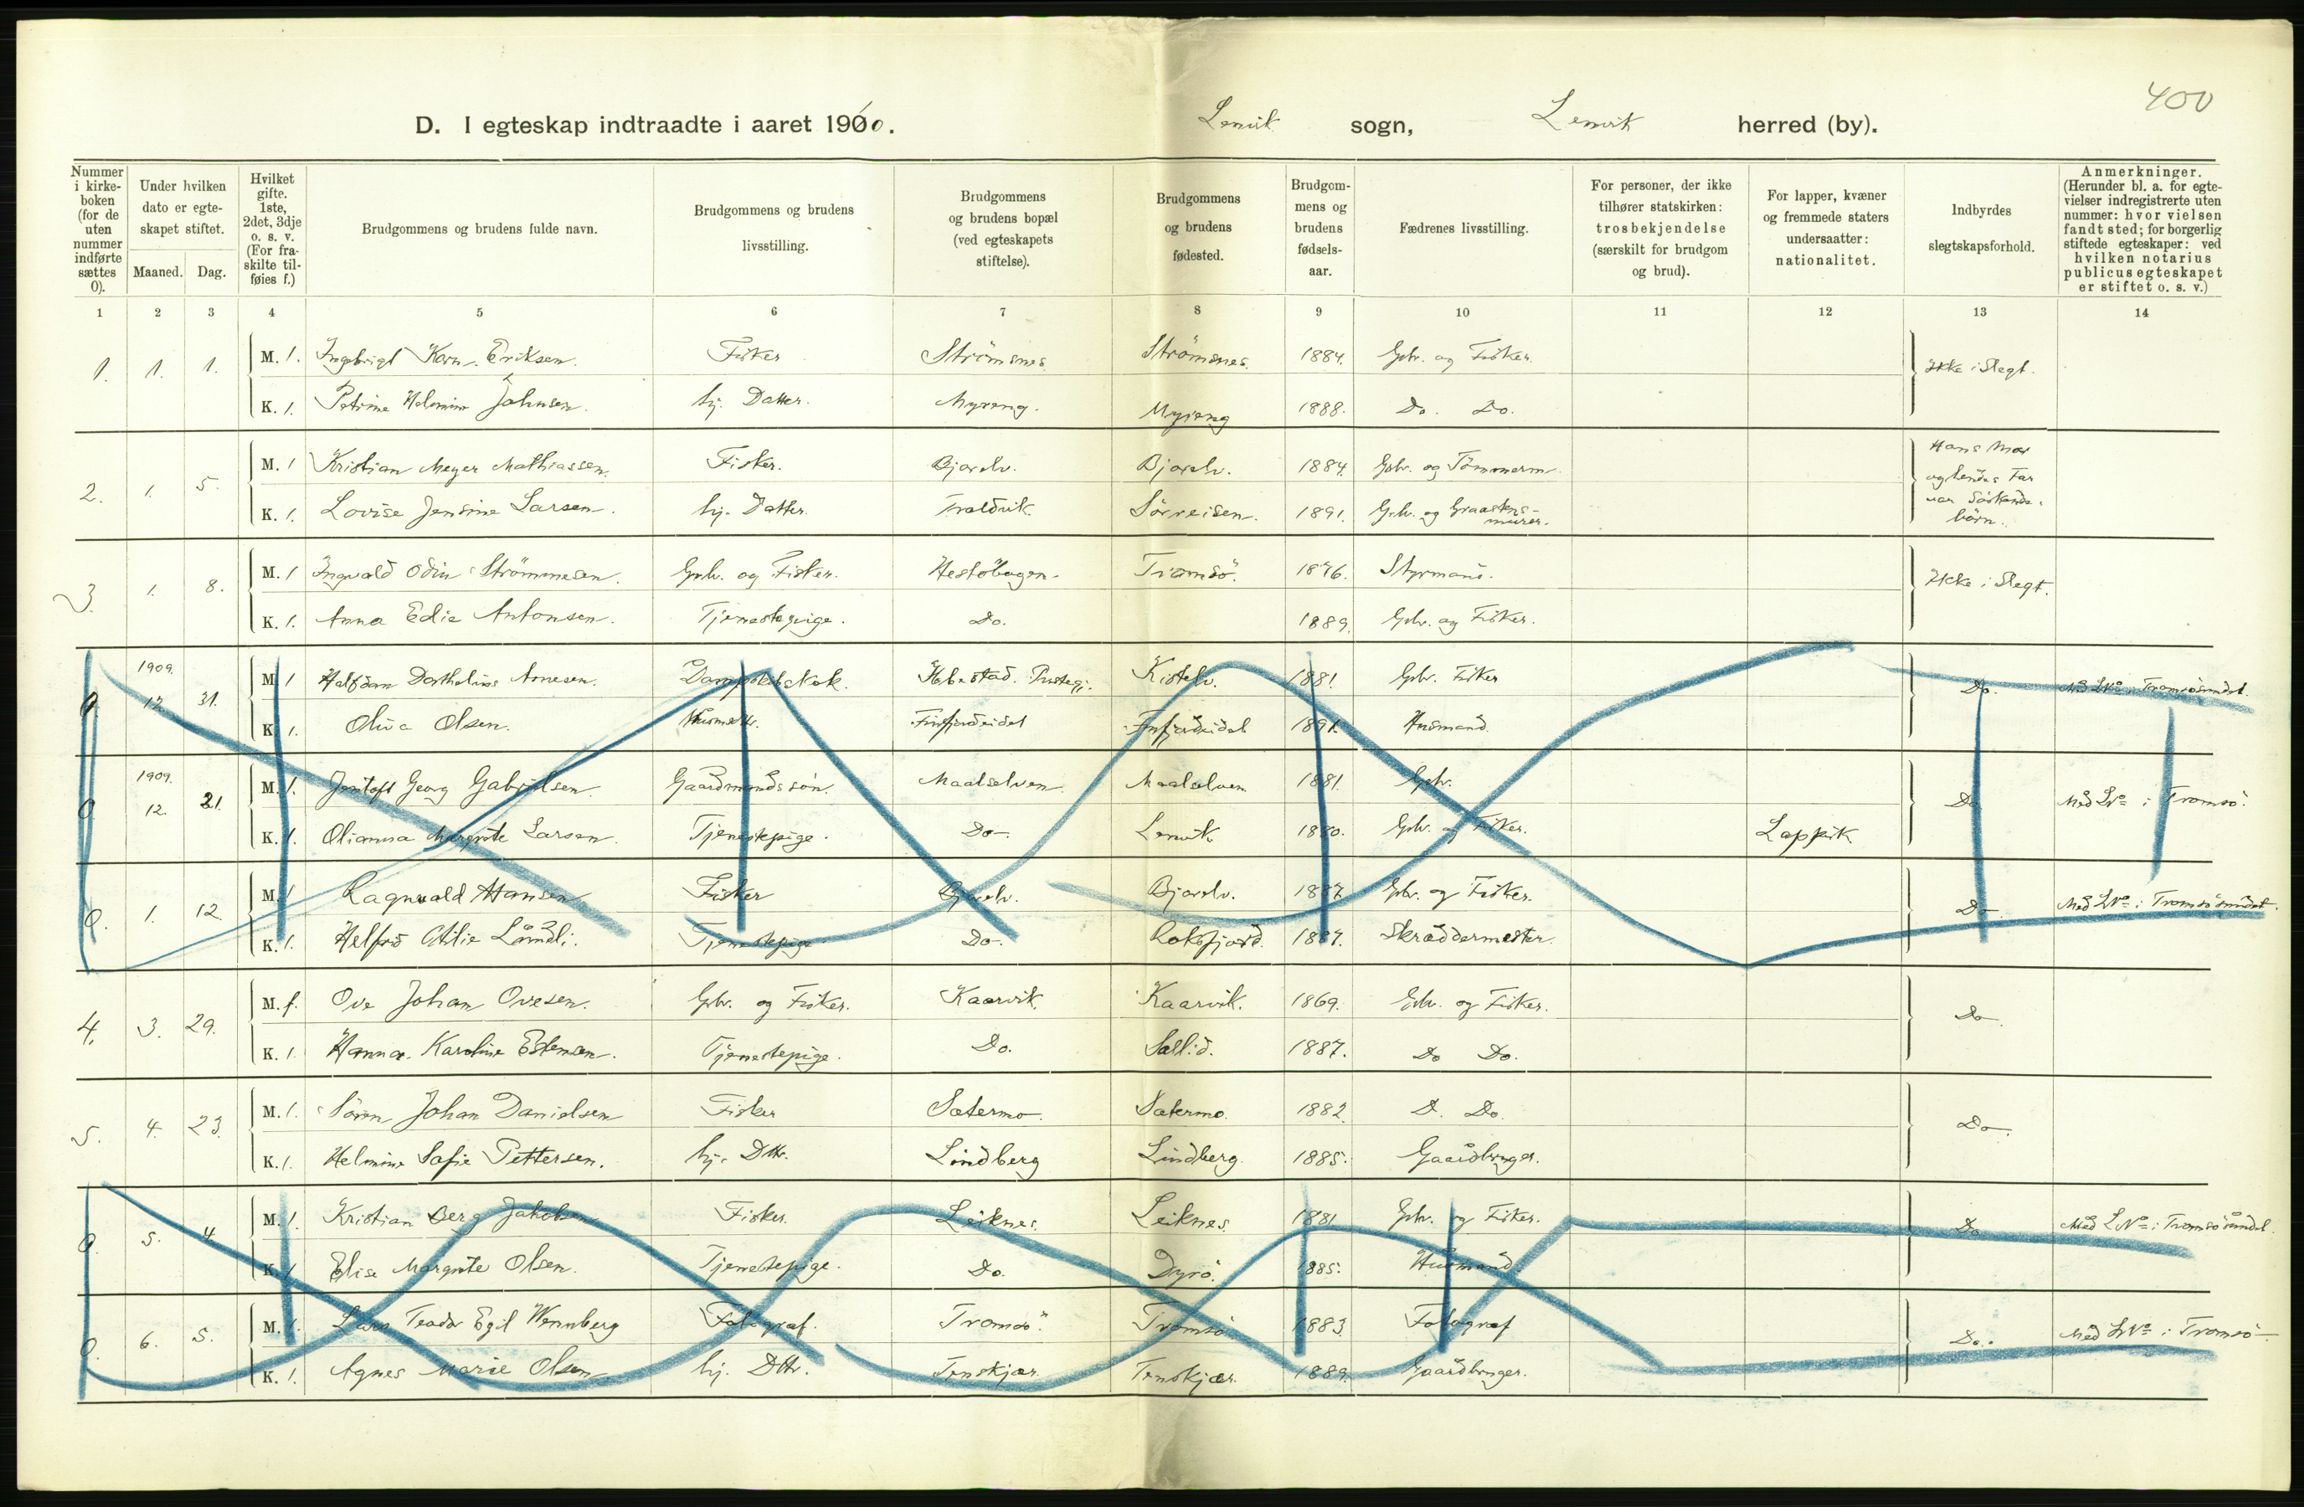 400
D. I egteskap indtraadte i aaret 1910. Lenvik sogn, Lenvik herred (by).
Nummer i kirke-boken (for de uten nummer indførte sættes 0).
Under hvilken dato er egte-skapet stiftet.
Maaned. Dag.
Hvilket gifte. 1ste, 2det, 3dje o. s. v. (For fra-skilte til-føies f.)
Brudgommens og brudens fulde navn.
Brudgommens og brudens livsstilling.
Brudgommens og brudens bopæl (ved egteskapets stiftelse).
Brudgommens og brudens fødested.
Brudgom-mens og brudens fødsels-aar.
Fædrenes livsstilling.
For personer, der ikke tilhører statskirken: trosbekjendelse (særskilt for brudgom og brud).
For lapper, kvæner og fremmede staters undersaatter: nationalitet.
Indbyrdes slegtskapsforhold.
Anmerkninger. (Herunder bl. a. for egte-vielser indregistrerte uten nummer: hvor vielsen fandt sted; for borgerlig stiftede egteskaper: ved hvilken notarius publicus egteskapet er stiftet o. s. v.)
1 2 3 4 5 6 7 8 9 10 11 12 13 14
1. 1. 1. M. 1. Ingebrigt Korn. Eriksen. Fisker Strömsnes. Strömsnes. 1884. Gbr. og Fisker. Ikke i Slegt.
K. 1. Petrine Helmine Johnsen. hj. Datter. Myreng. Myreng 1888. Do. Do.
2. 1. 5. M. 1 Kristian Meyer Mathiassen. Fisker. Bjorelv. Bjorelv. 1884. Gbr. og Tömmerm. Hans Mor
K. 1. Lovise Jensine Larsen. hj. Datter. Sörreisen. 1891. Gbr. og Graastens-murer. og hendes Far var Söskende-börn.
3. 1. 8. M. 1 Ingvald Odin Strömmesen. Gbr. og Fisker. Tromsö. 1876. Styrmand. Ikke i Slegt.
K. 1. Anna Edie Antonsen. Tjenestepige. Do. 1889. Gbr. og Fisker.
0 1909. 12. 31. M. 1 Halfdan Arnesen. Dampskibskok. Kistelv. 1881. Gbr. Fisker Do. Med LNo i Tromsösundet.
K. 1. Oliva Olsen. Finfjordeidet Finfjordeidet 1891. Husmand.
0. 1909. 12. 21. M. 1. Jentoft Georg Gabrielsen. Gaardmandssön. Maalselven. Maalselven 1881. Gbr. Do Med LNo i Tromsö.
K. 1. Olianna Margrete Larsen. Tjenestepige. Do. Lenvik 1880. Gbr. og Fisker. Lappisk
0. 1. 12. M. 1 Ragnvald Hansen Fisker Bjorelv. Bjorelv. 1887. Gbr. og Fisker. Do Med LNo i Tromsösundet.
K. 1. Helfrid Otilie Tjenestepige Do. 1887. Skræddermester.
4. 3. 29. M. f. Ove Johan Ovesen. Gbr. og Fisker. Kaarvik. Kaarvik. 1869. Gbr. og Fisker. Do.
K. 1. Hanna Karoline Estensen. Tjenestepige. Do. 1887. Do Do.
5. 4. 23. M. 1. Sören Johan Danielsen Fisker Sætermo. Sætermo. 1882. D. Do. Do.
K. 1. Helmine Sofie Pettersen. hj. Dttr. Lindberg Lindberg. 1885. Gaardbruger.
0. 5. 4 M. 1. Kristian Berg Jakobsen Fisker. Leiknes. Leiknes. 1881 Gbr. og Fisker. Do Med LNo i Tromsösundet.
K. 1 Elise Margrete Olsen. Tjenestepige. Do. Dyrö. 1885. Husmand.
0. 6. 5. M. 1. Lars Teodor Egil Wennberg Fotograf. Tromsö. Tromsö 1883. Fotograf Do. Med LNo i Tromsö
K. 1. Agnes Marie Olsen hj. Dttr. Tenskjær. Tenskjær. 1889. Gaardbruger.